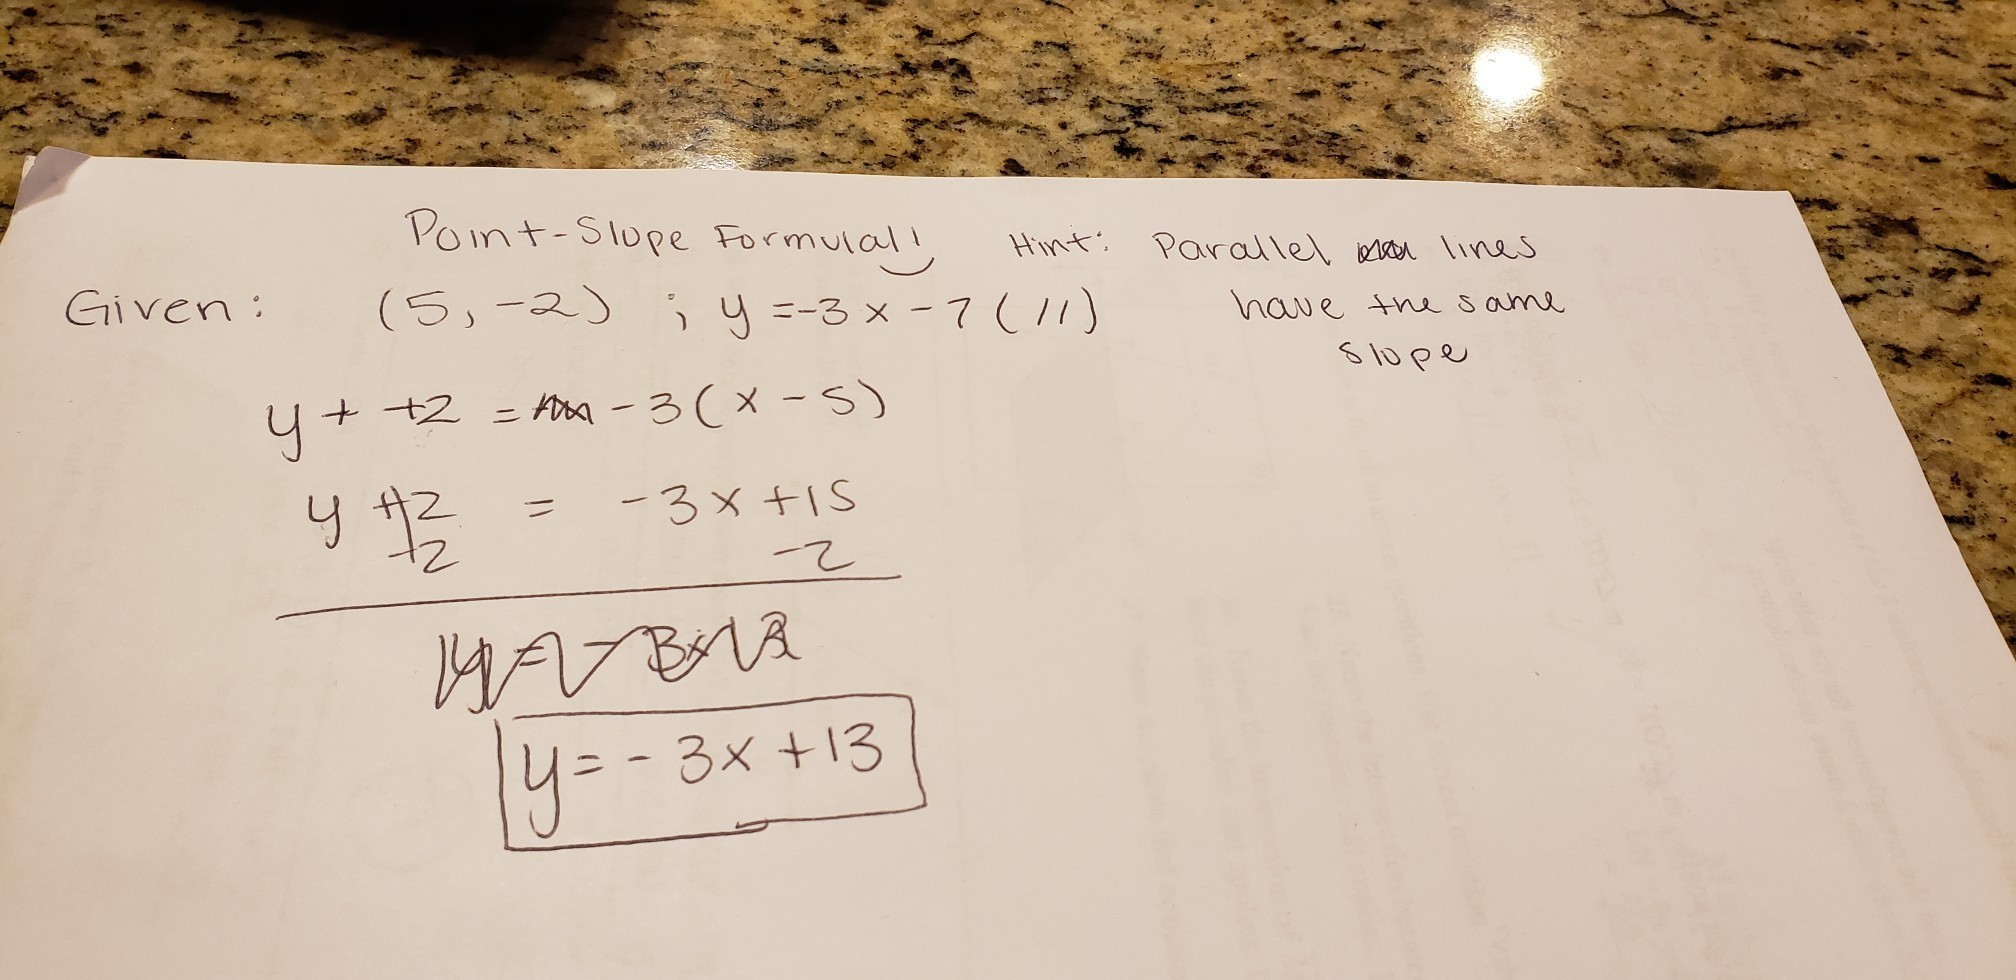 Point-Slope Formula!! Hint: Parallel lines
Given: (5, -2) ; y = -3x - 7 (//) have the same
slope
y + +2 = -3(x - 5)
y +2 = -3x +15
+2 -2
y = -3x +13